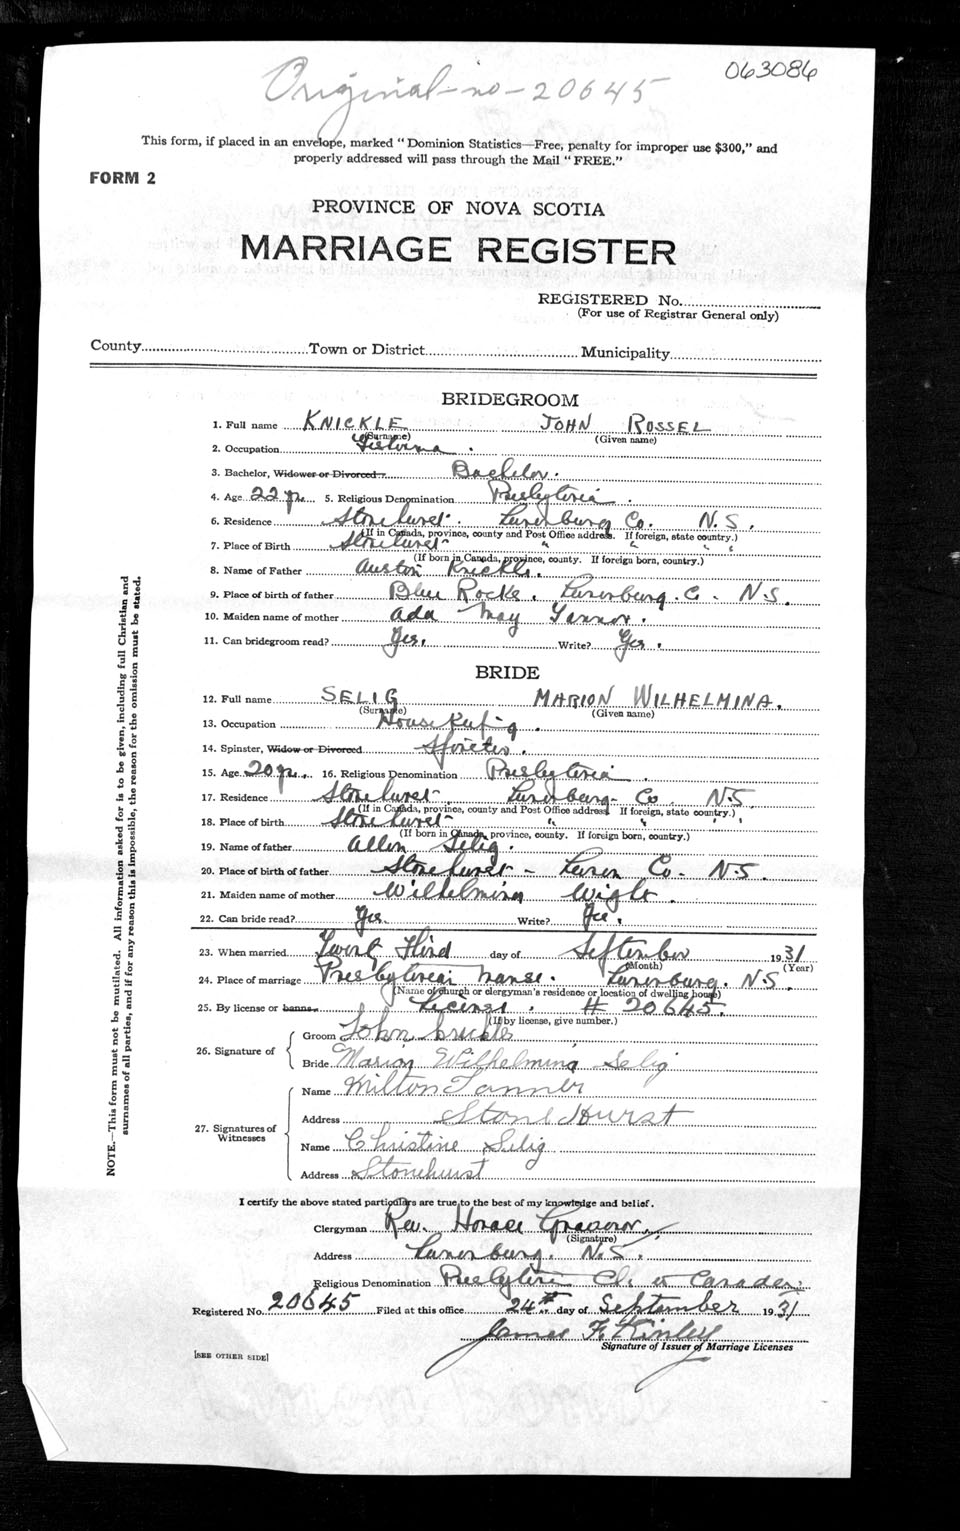 063086
Original-no-20645
This form, if placed in an envelope, marked "Dominion Statistics—Free, penalty for improper use $300," and
properly addressed will pass through the Mail "FREE."
FORM 2
PROVINCE OF NOVA SCOTIA
MARRIAGE REGISTER
REGISTERED No.
(For use of Registrar General only)
County Town or District Municipality
BRIDEGROOM
1. Full name KNICKLE JOHN ROSSEL
(Surname) (Given name)
2. Occupation
3. Bachelor, Widower or Divorced Bachelor.
4. Age 22 yr. 5. Religious Denomination Presbyteria
6. Residence Stonehurst. Lunenburg Co. N.S.
(If in Canada, province, county and Post Office address. If foreign, state country.)
7. Place of Birth Stonehurst " " " "
(If born in Canada, province, county. If foreign born, country.)
8. Name of Father Auston Knickle.
9. Place of birth of father Blue Rocks. Lunenburg. Co. N.S.
10. Maiden name of mother Ada May Tanner.
11. Can bridegroom read? Yes. Write? Yes.
BRIDE
12. Full name SELIG MARION WILHELMINA.
(Surname) (Given name)
13. Occupation House Keeping
14. Spinster, Widow or Divorced Spinster.
15. Age 20 yr. 16. Religious Denomination Presbyteria
17. Residence Stonehurst Lunenburg- Co. N.S.
(If in Canada, province, county and Post Office address. If foreign, state country.)
18. Place of birth Stonehurst " " " "
(If born in Canada, province, county. If foreign born, country.)
19. Name of father Allen Selig.
20. Place of birth of father Stonehurst - Lunen Co. N.S.
21. Maiden name of mother Wilhelmina Wight
22. Can bride read? Yes Write? Yes.
23. When married Twenty Third day of September 1931
(Month) (Year)
24. Place of marriage Presbyterian Manse. Lunenburg. N.S.
(Name of church or clergyman's residence or location of dwelling house)
25. By license or banns License. # 20645.
(If by license, give number.)
26. Signature of
Groom John Knickle
Bride Marion Wilhelmina Selig
27. Signatures of Witnesses
Name Milton Tanner
Address Stone Hurst
Name Christine Selig
Address Stonehurst
I certify the above stated particulars are true to the best of my knowledge and belief.
Clergyman Rev. Horace
(Signature)
Address Lunenburg. N.S.
Religious Denomination Presbyteri Ch. in Canada
Registered No. 20645 Filed at this office 24th day of September 1931
James F. Kinley
Signature of Issuer of Marriage Licenses
[SEE OTHER SIDE]
NOTE.—This form must not be mutilated. All information asked for is to be given, including full Christian and
surnames of all parties, and if for any reason this is impossible, the reason for the omission must be stated.